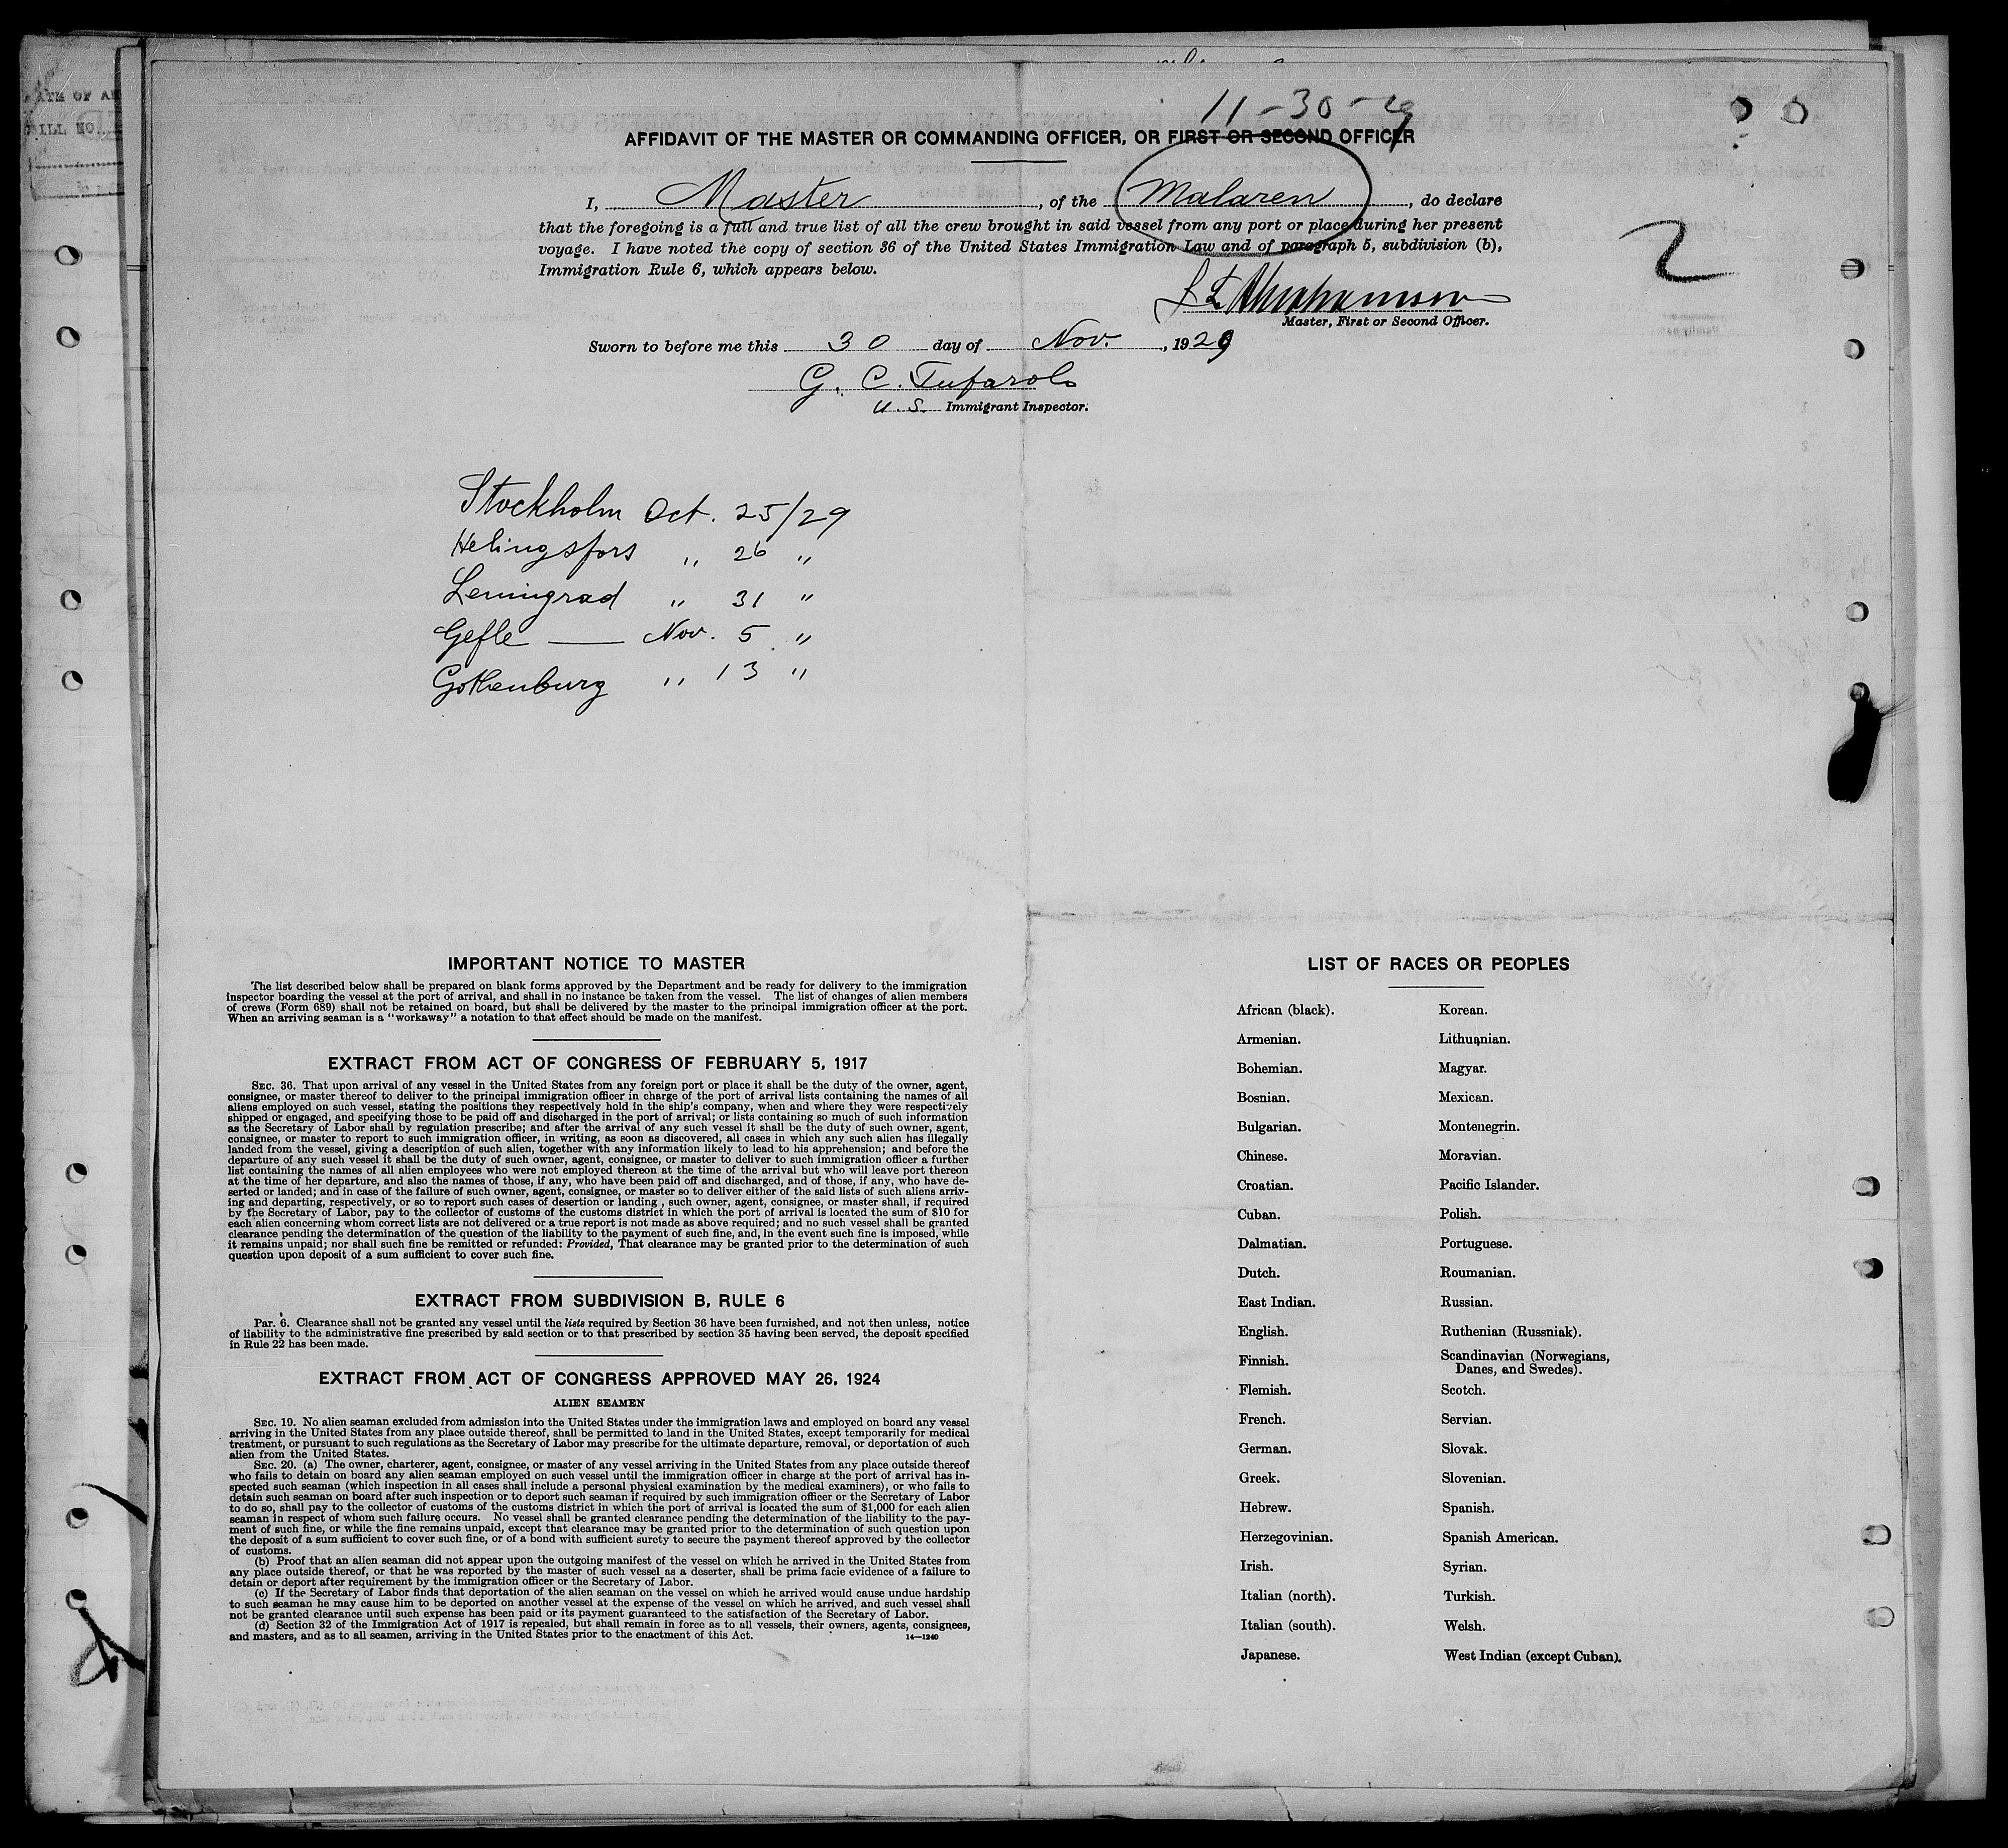 ATE OF AR
ILL NO.
11-30-29
AFFIDAVIT OF THE MASTER OR COMMANDING OFFICER, OR FIRST OR SECOND OFFICER
I, Master, of the Malaren, do declare
that the foregoing is a full and true list of all the crew brought in said vessel from any port or place during her present
voyage. I have noted the copy of section 36 of the United States Immigration Law and of paragraph 5, subdivision (b),
Immigration Rule 6, which appears below.
2
Abrahamson
Master, First or Second Officer.
Sworn to before me this 30 day of Nov., 1929
G. C. Tufarolo
U.S. Immigrant Inspector.
Stockholm Oct. 25/29
Helingsfors " 26 "
Leningrad " 31 "
Gefle — Nov. 5 "
Gothenburg " 13 "
IMPORTANT NOTICE TO MASTER
The list described below shall be prepared on blank forms approved by the Department and be ready for delivery to the immigration
inspector boarding the vessel at the port of arrival, and shall in no instance be taken from the vessel. The list of changes of alien members
of crews (Form 689) shall not be retained on board, but shall be delivered by the master to the principal immigration officer at the port.
When an arriving seaman is a "workaway" a notation to that effect should be made on the manifest.
EXTRACT FROM ACT OF CONGRESS OF FEBRUARY 5, 1917
SEC. 36. That upon arrival of any vessel in the United States from any foreign port or place it shall be the duty of the owner, agent,
consignee, or master thereof to deliver to the principal immigration officer in charge of the port of arrival lists containing the names of all
aliens employed on such vessel, stating the positions they respectively hold in the ship's company, when and where they were respectively
shipped or engaged, and specifying those to be paid off and discharged in the port of arrival; or lists containing so much of such information
as the Secretary of Labor shall by regulation prescribe; and after the arrival of any such vessel it shall be the duty of such owner, agent,
consignee, or master to report to such immigration officer, in writing, as soon as discovered, all cases in which any such alien has illegally
landed from the vessel, giving a description of such alien, together with any information likely to lead to his apprehension; and before the
departure of any such vessel it shall be the duty of such owner, agent, consignee, or master to deliver to such immigration officer a further
list containing the names of all alien employees who were not employed thereon at the time of the arrival but who will leave port thereon
at the time of her departure, and also the names of those, if any, who have been paid off and discharged, and of those, if any, who have de-
serted or landed; and in case of the failure of such owner, agent, consignee, or master so to deliver either of the said lists of such aliens arriv-
ing and departing, respectively, or so to report such cases of desertion or landing , such owner, agent, consignee, or master shall, if required
by the Secretary of Labor, pay to the collector of customs of the customs district in which the port of arrival is located the sum of $10 for
each alien concerning whom correct lists are not delivered or a true report is not made as above required; and no such vessel shall be granted
clearance pending the determination of the question of the liability to the payment of such fine, and, in the event such fine is imposed, while
it remains unpaid; nor shall such fine be remitted or refunded: Provided, That clearance may be granted prior to the determination of such
question upon deposit of a sum sufficient to cover such fine.
EXTRACT FROM SUBDIVISION B, RULE 6
Par. 6. Clearance shall not be granted any vessel until the lists required by Section 36 have been furnished, and not then unless, notice
of liability to the administrative fine prescribed by said section or to that prescribed by section 35 having been served, the deposit specified
in Rule 22 has been made.
EXTRACT FROM ACT OF CONGRESS APPROVED MAY 26, 1924
ALIEN SEAMEN
SEC. 19. No alien seaman excluded from admission into the United States under the immigration laws and employed on board any vessel
arriving in the United States from any place outside thereof, shall be permitted to land in the United States, except temporarily for medical
treatment, or pursuant to such regulations as the Secretary of Labor may prescribe for the ultimate departure, removal, or deportation of such
alien from the United States.
SEC. 20. (a) The owner, charterer, agent, consignee, or master of any vessel arriving in the United States from any place outside thereof
who fails to detain on board any alien seaman employed on such vessel until the immigration officer in charge at the port of arrival has in-
spected such seaman (which inspection in all cases shall include a personal physical examination by the medical examiners), or who fails to
detain such seaman on board after such inspection or to deport such seaman if required by such immigration officer or the Secretary of Labor
to do so, shall pay to the collector of customs of the customs district in which the port of arrival is located the sum of $1,000 for each alien
seaman in respect of whom such failure occurs. No vessel shall be granted clearance pending the determination of the liability to the pay-
ment of such fine, or while the fine remains unpaid, except that clearance may be granted prior to the determination of such question upon
the deposit of a sum sufficient to cover such fine, or of a bond with sufficient surety to secure the payment thereof approved by the collector
of customs.
(b) Proof that an alien seaman did not appear upon the outgoing manifest of the vessel on which he arrived in the United States from
any place outside thereof, or that he was reported by the master of such vessel as a deserter, shall be prima facie evidence of a failure to
detain or deport after requirement by the immigration officer or the Secretary of Labor.
(c) If the Secretary of Labor finds that deportation of the alien seaman on the vessel on which he arrived would cause undue hardship
to such seaman he may cause him to be deported on another vessel at the expense of the vessel on which he arrived, and such vessel shall
not be granted clearance until such expense has been paid or its payment guaranteed to the satisfaction of the Secretary of Labor.
(d) Section 32 of the Immigration Act of 1917 is repealed, but shall remain in force as to all vessels, their owners, agents, consignees,
and masters, and as to all seamen, arriving in the United States prior to the enactment of this Act.
14—1240
LIST OF RACES OR PEOPLES
African (black).
Armenian.
Bohemian.
Bosnian.
Bulgarian.
Chinese.
Croatian.
Cuban.
Dalmatian.
Dutch.
East Indian.
English.
Finnish.
Flemish.
French.
German.
Greek.
Hebrew.
Herzegovinian.
Irish.
Italian (north).
Italian (south).
Japanese.
Korean.
Lithuanian.
Magyar.
Mexican.
Montenegrin.
Moravian.
Pacific Islander.
Polish.
Portuguese.
Roumanian.
Russian.
Ruthenian (Russniak).
Scandinavian (Norwegians,
Danes, and Swedes).
Scotch.
Servian.
Slovak.
Slovenian.
Spanish.
Spanish American.
Syrian.
Turkish.
Welsh.
West Indian (except Cuban).